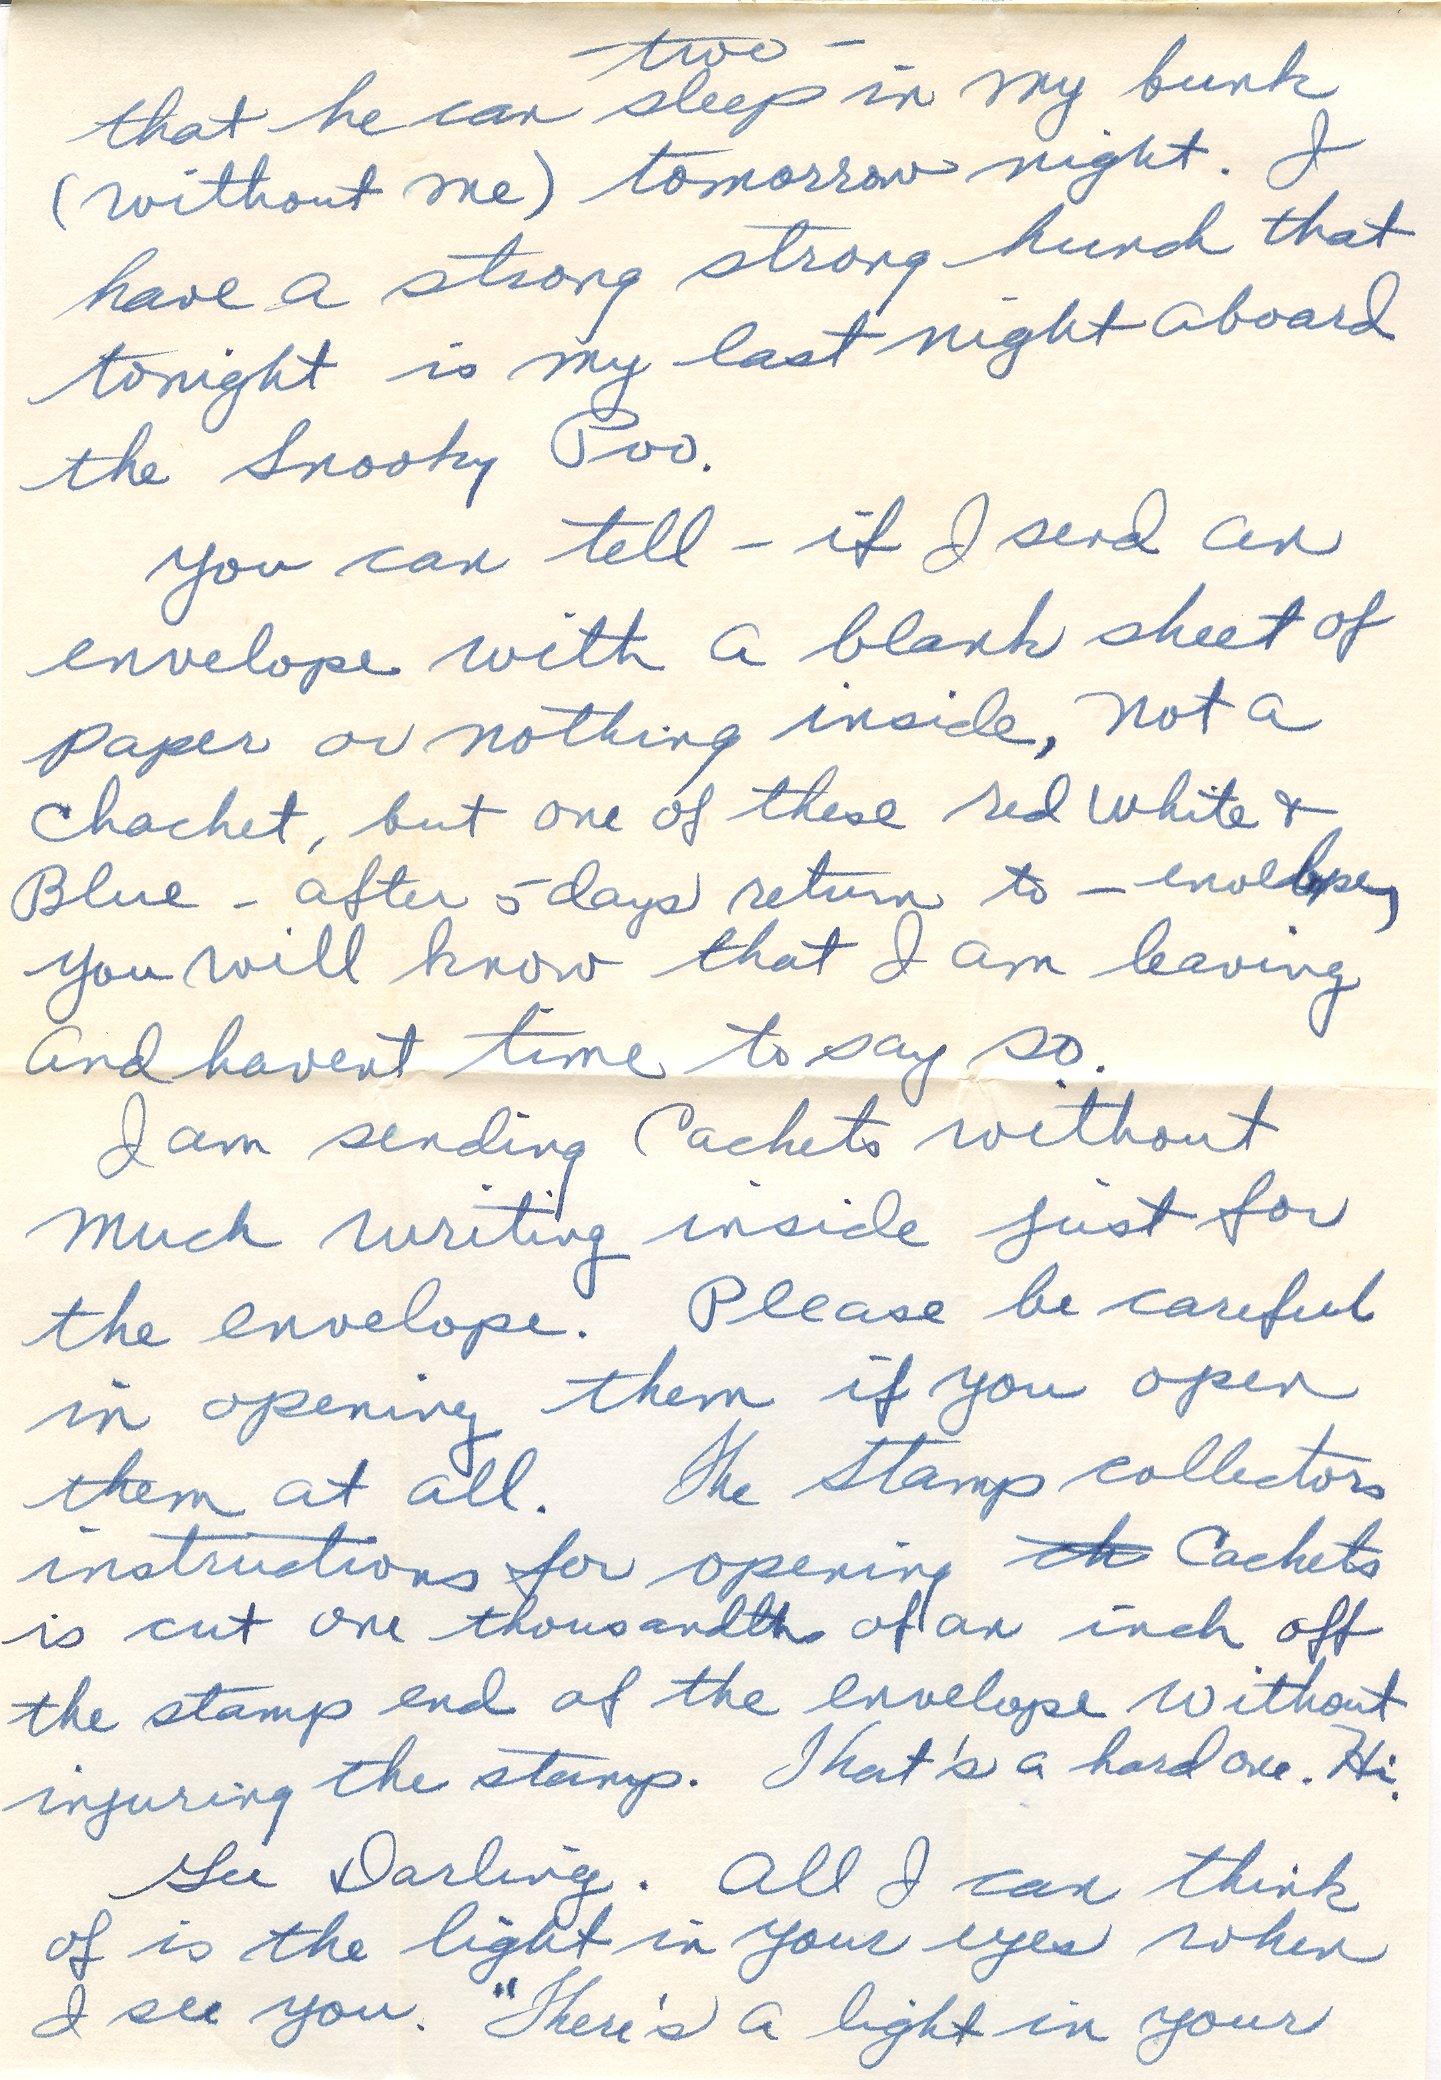 - two -
that he can sleep in my bunk
(without me) tomorrow night. I
have a strong strong hunch that
tonight is my last night aboard
the Snooky Poo.
You can tell - if I send an
envelope with a blank sheet of
paper or nothing inside, not a
Chachet, but one of these red white &
Blue - after 5 days return to - envelope,
you will know that I am leaving
and havent time to say so.
I am sending Cachets without
much writing inside just for
the envelope. Please be careful
in opening them if you open
them at all. The stamp collectors
instructions for opening ch Cachets
is cut one thousandth of an inch off
the stamp end of the envelope without
injuring the stamp. That's a hard one. Hi.
Gee Darling. All I can think
of is the light in your eyes when
I see you. "There's a light in your